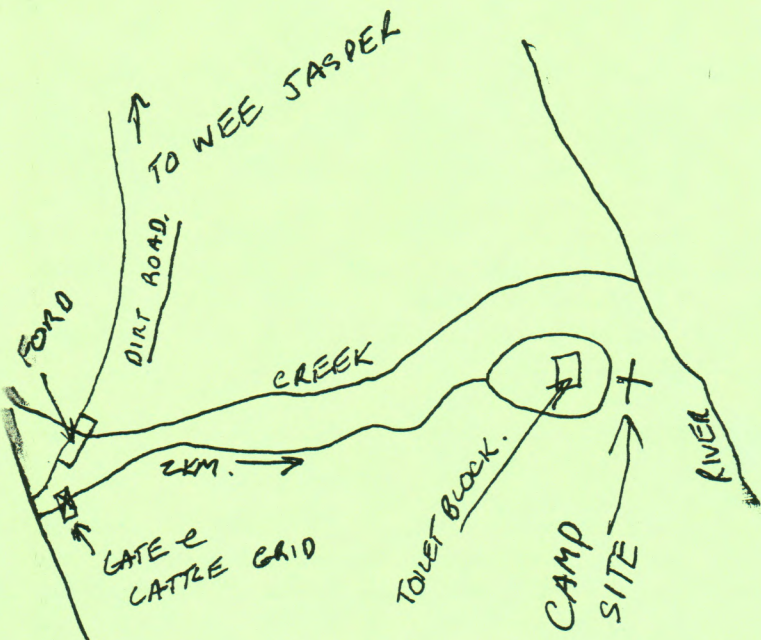 TO WEE JASPER
DIRT ROAD.
FORD
CREEK
2KM.
GATE &
CATTLE GRID
TOILET BLOCK.
CAMP
SITE
RIVER